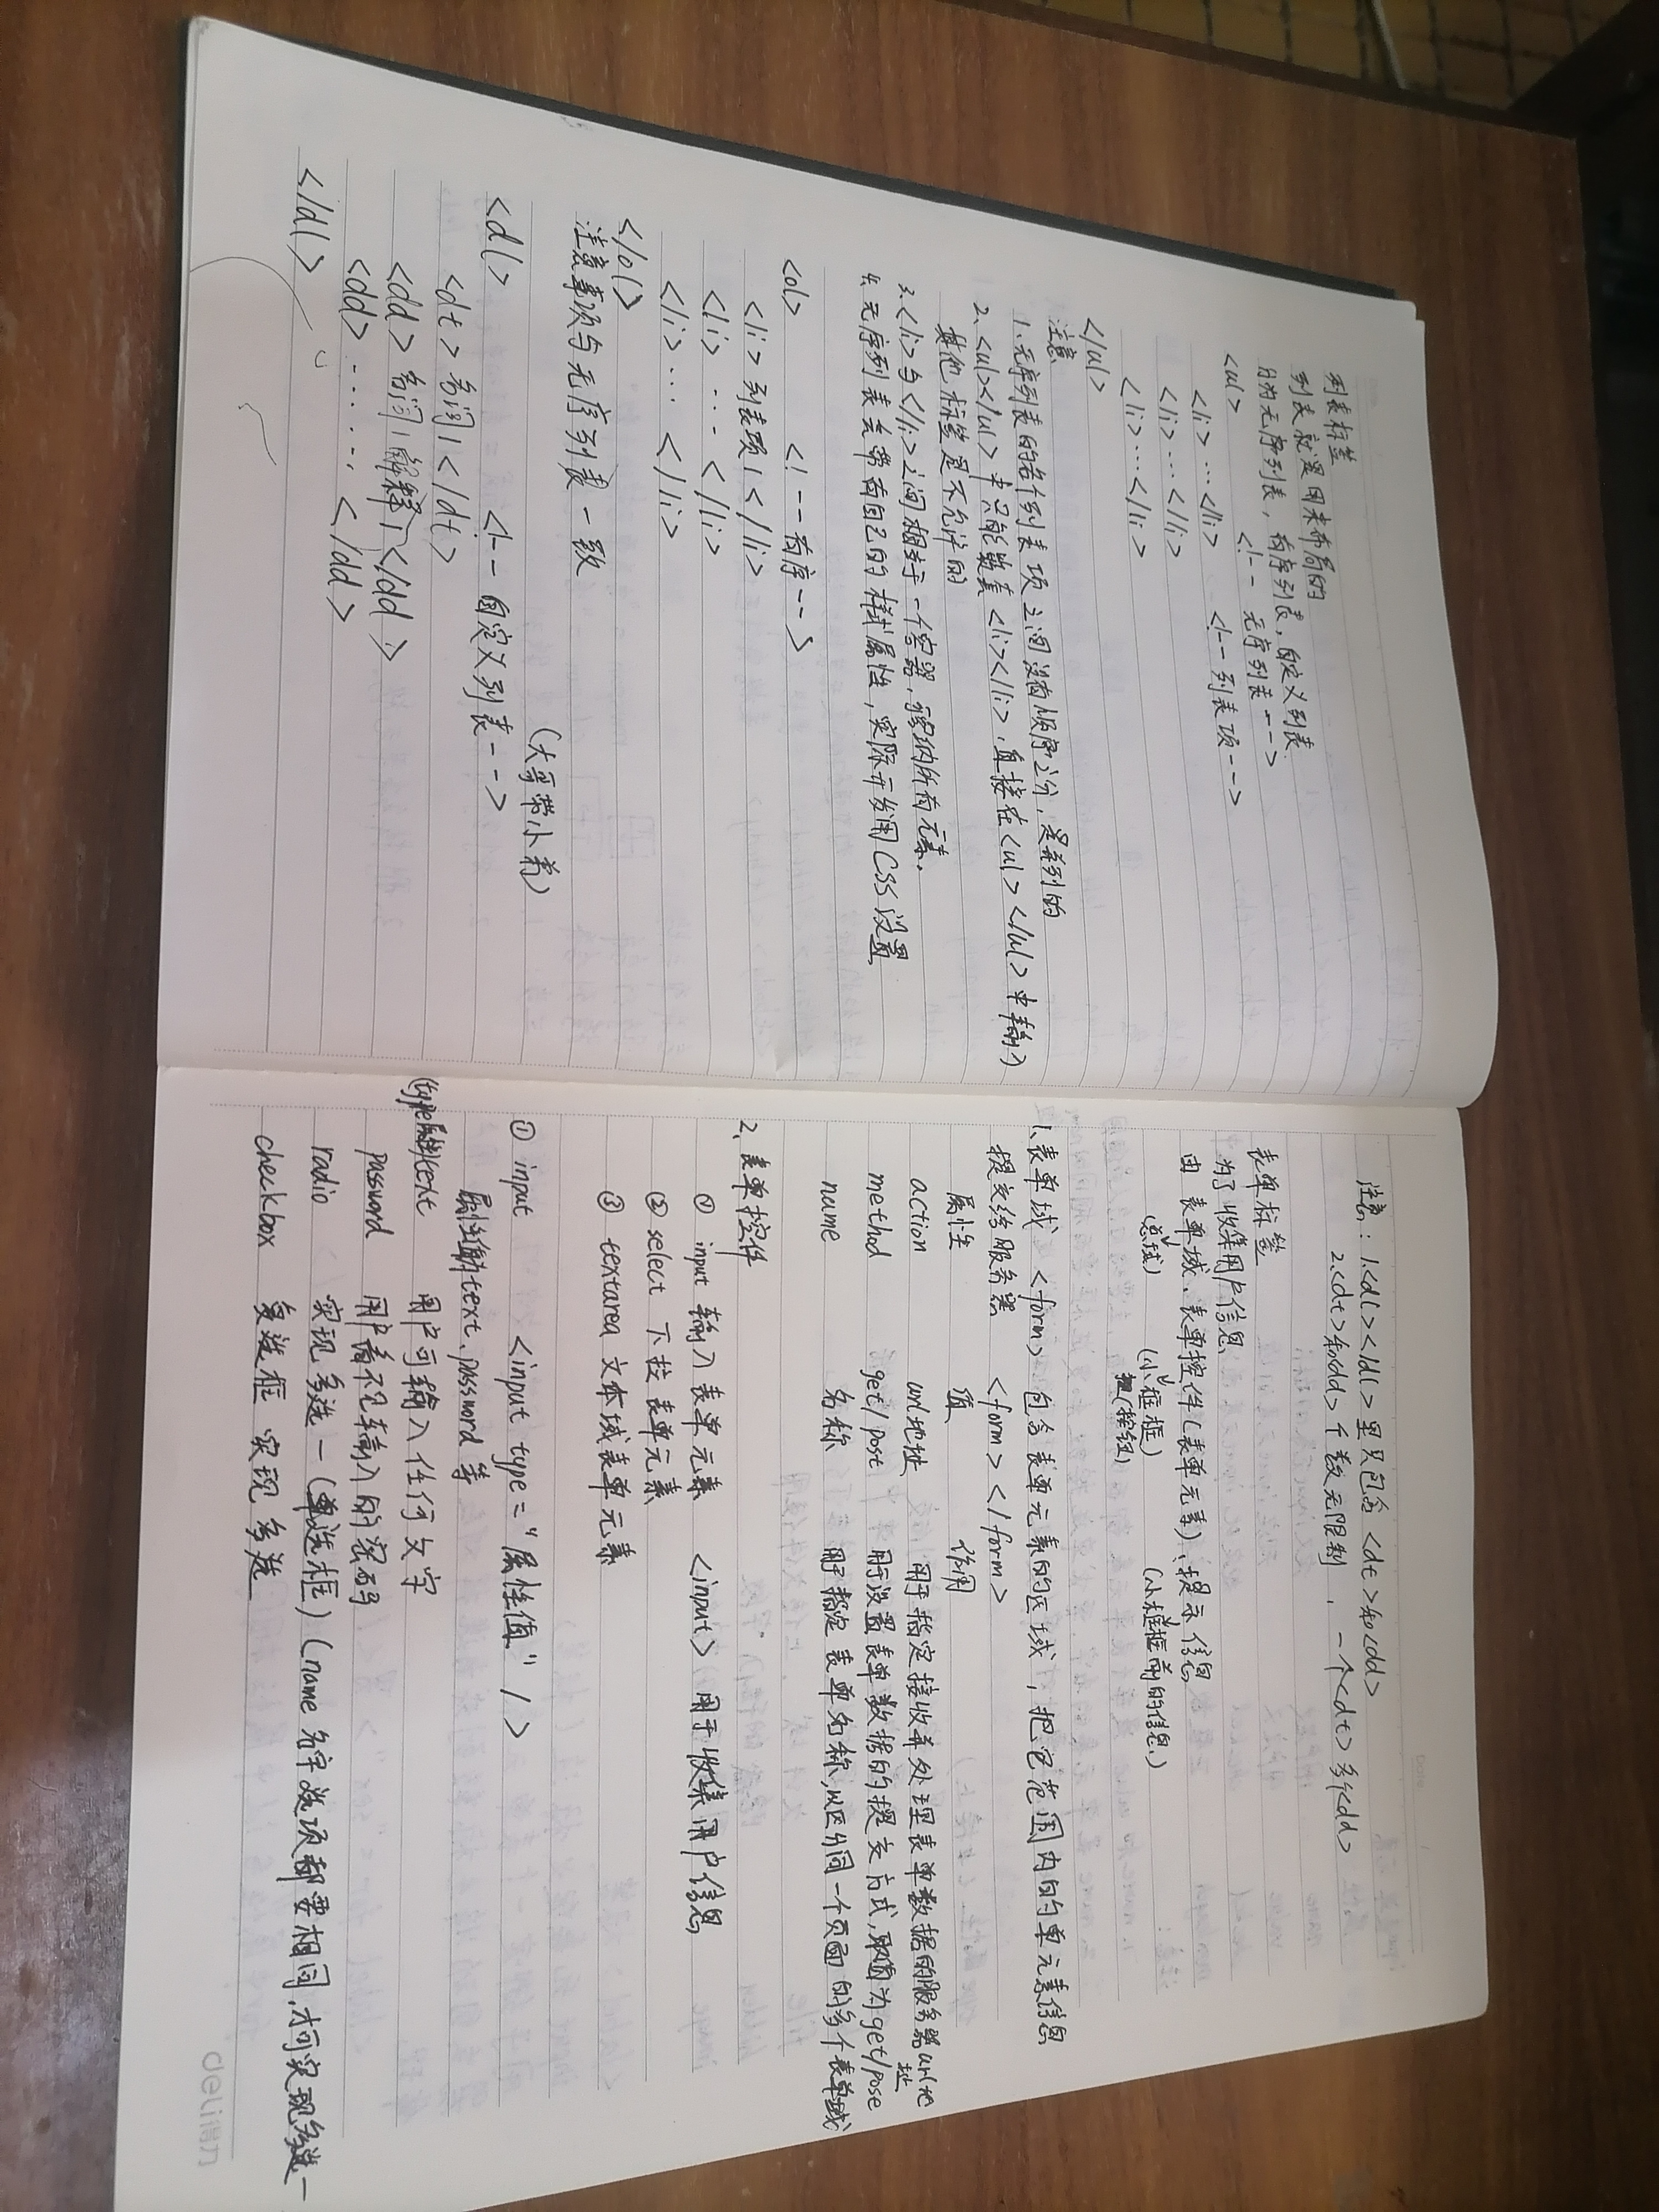 列表标签
列表就是用来布局的
分为无序列表，有序列表，自定义列表
<ul> <!-- 无序列表 -->
<li>…</li> <!-- 列表项 -->
<li>…</li>
<li>…</li>
</ul>
注意
1.无序列表的各个列表项之间没有顺序之分，是并列的
2.<ul></ul>中只能嵌套<li></li>，直接在<ul></ul>中输入
其他标签是不允许的
3.<li>与</li>之间相当于一个容器，容纳所有元素.
4.无序列表会带有自己的样式属性，实际开发用CSS设置
<ol> <!--有序-->
<li>列表项1</li>
<li>…</li>
<li>…</li>
</ol>
注意事项与无序列表一致
(大哥带小弟)
<dl> <!-- 自定义列表-->
<dt>名词1</dt>
<dd>名词1解释1</dd>
<dd>……</dd>
</dl>
注意: 1.<dl></dl>里只包含<dt>和<dd>
2.<dt>和<dd>个数无限制，一个<dt>多个<dd>
表单标签
为了收集用户信息
由表单域、表单控件(表单元素)、提示信息
(总域) (小框框) (小框框前的信息)
(按钮)
1.表单域 <form> 包含表单元素的区域，把它范围内的单元素信息
提交给服务器 <form></form>
属性 值 作用
action url地址 用于指定接收并处理表单数据的服务器url地址
method get/post 用于设置表单数据的提交方式,取值为get/pose
name 名称 用于指定表单名称,以区分同一个页面的多个表单域
2、表单控件
① input 输入表单元素 <input> 用于收集用户信息
② select 下拉表单元素
③ textarea 文本域表单元素
① input <input type="属性值" />
属性值为text、password等
(type属性)text 用户可输入任何文字
password 用户看不见输入的密码
radio 实现多选一(单选框)(name名字选项都要相同,才可实现多选一
checkbox 复选框 实现多选
deli得力